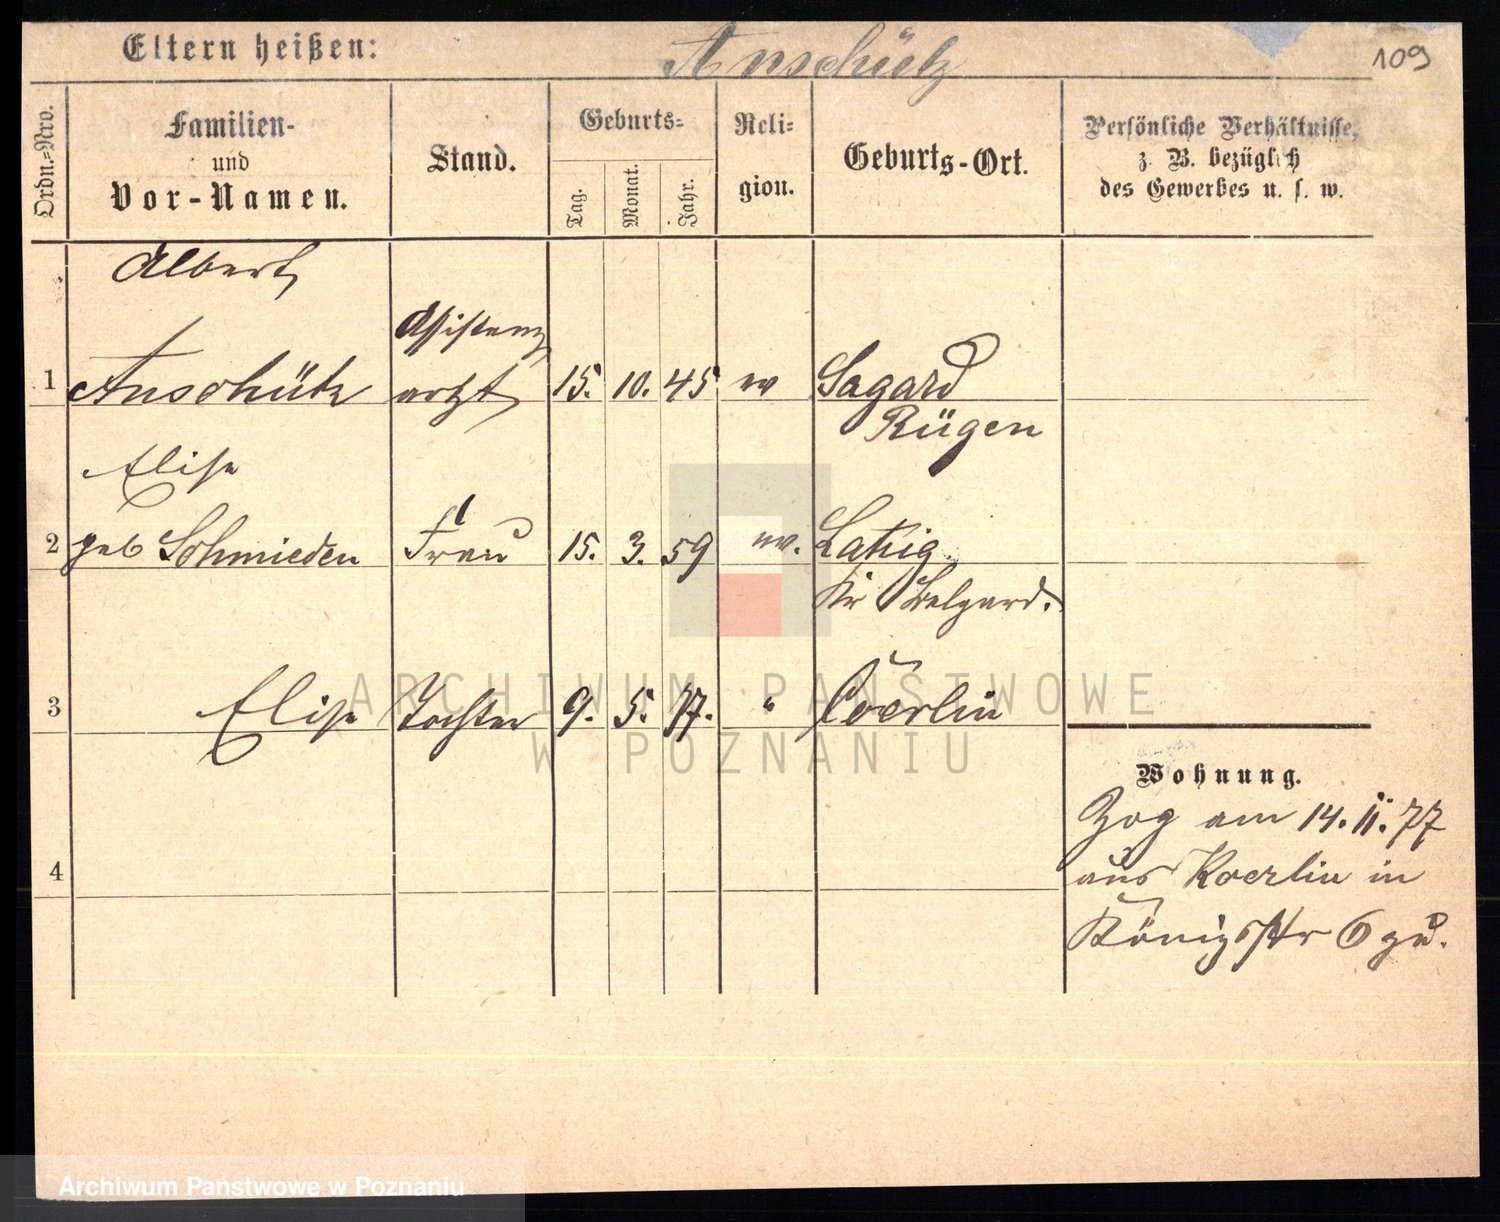 Eltern heißen: Anschütz 109
Ordn.-Nro.
Familien-
und
Vor-Namen.
Stand.
Geburts-
Tag. Monat. Jahr.
Reli-
gion.
Geburts-Ort.
Persönliche Verhältnisse,
z. B. bezüglich
des Gewerbes u. s. w.
Albert
Assistenz
1 Anschütz arzt 15. 10. 45 ev Sagard
Rügen
Elise
2 geb Schmieden Frau 15. 3. 59 ev.
Kr Belgard.
3 Elise Tochter 9. 5. 77. " Coerlin
ARCHIWUM PAŃSTWOWE
W POZNANIU
Wohnung.
Zog am 14. 11. 77
4 aus Koerlin in
Königsstr 6 zu.
Archiwum Państwowe w Poznaniu